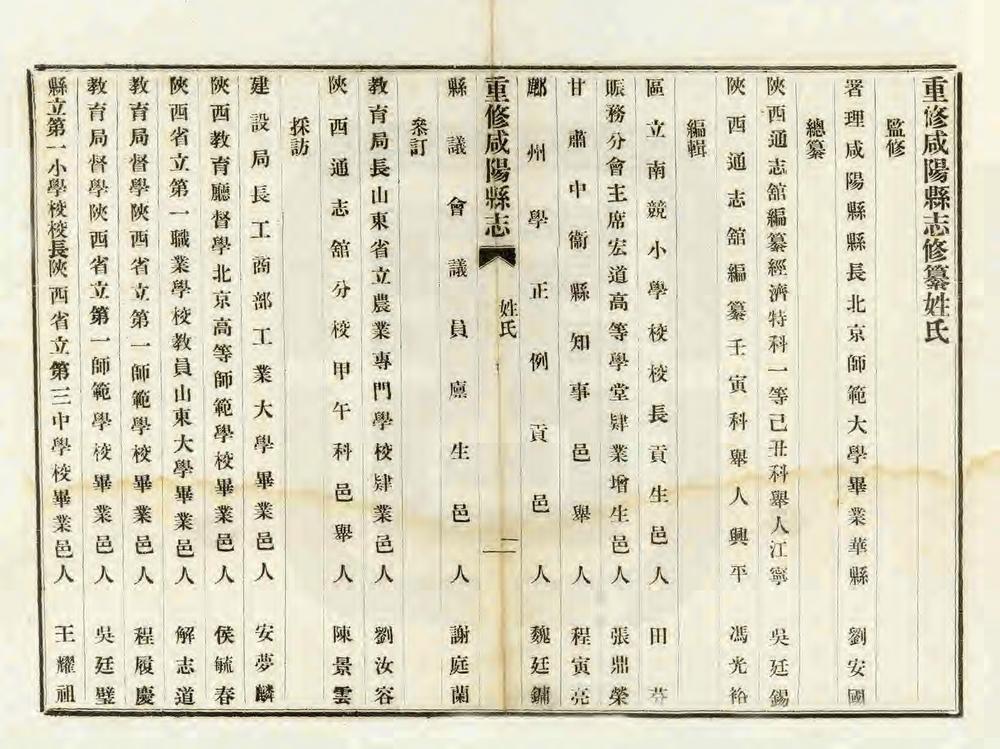 重修咸陽縣志修纂姓氏
監修
署理咸陽縣縣長北京師範大學畢業華縣 劉安國
總纂
陝西通志舘編纂經濟特科一等己丑科舉人江寧 吳廷錫
陝西通志舘編纂壬寅科舉人興平 馮光裕
編輯
區立南競小學校校長貢生邑人 田芬
賑務分會主席宏道高等學堂肄業增生邑人 張鼎榮
甘肅中衞縣知事邑舉人 程寅亮
鄜州學正例貢邑人 魏廷鏞
重修咸陽縣志 姓氏 二
縣議會議員廩生邑人 謝庭蘭
叅訂
教育局長山東省立農業專門學校肄業邑人 劉汝容
陝西通志舘分校甲午科邑舉人 陳景雲
採訪
建設局長工商部工業大學畢業邑人 安夢麟
陝西教育廳督學北京高等師範學校畢業邑人 侯毓春
陝西省立第一職業學校教員山東大學畢業邑人 解志道
教育局督學陝西省立第一師範學校畢業邑人 程履慶
教育局督學陝西省立第一師範學校畢業邑人 吳廷璧
縣立第一小學校校長陝西省立第三中學校畢業邑人 王耀祖